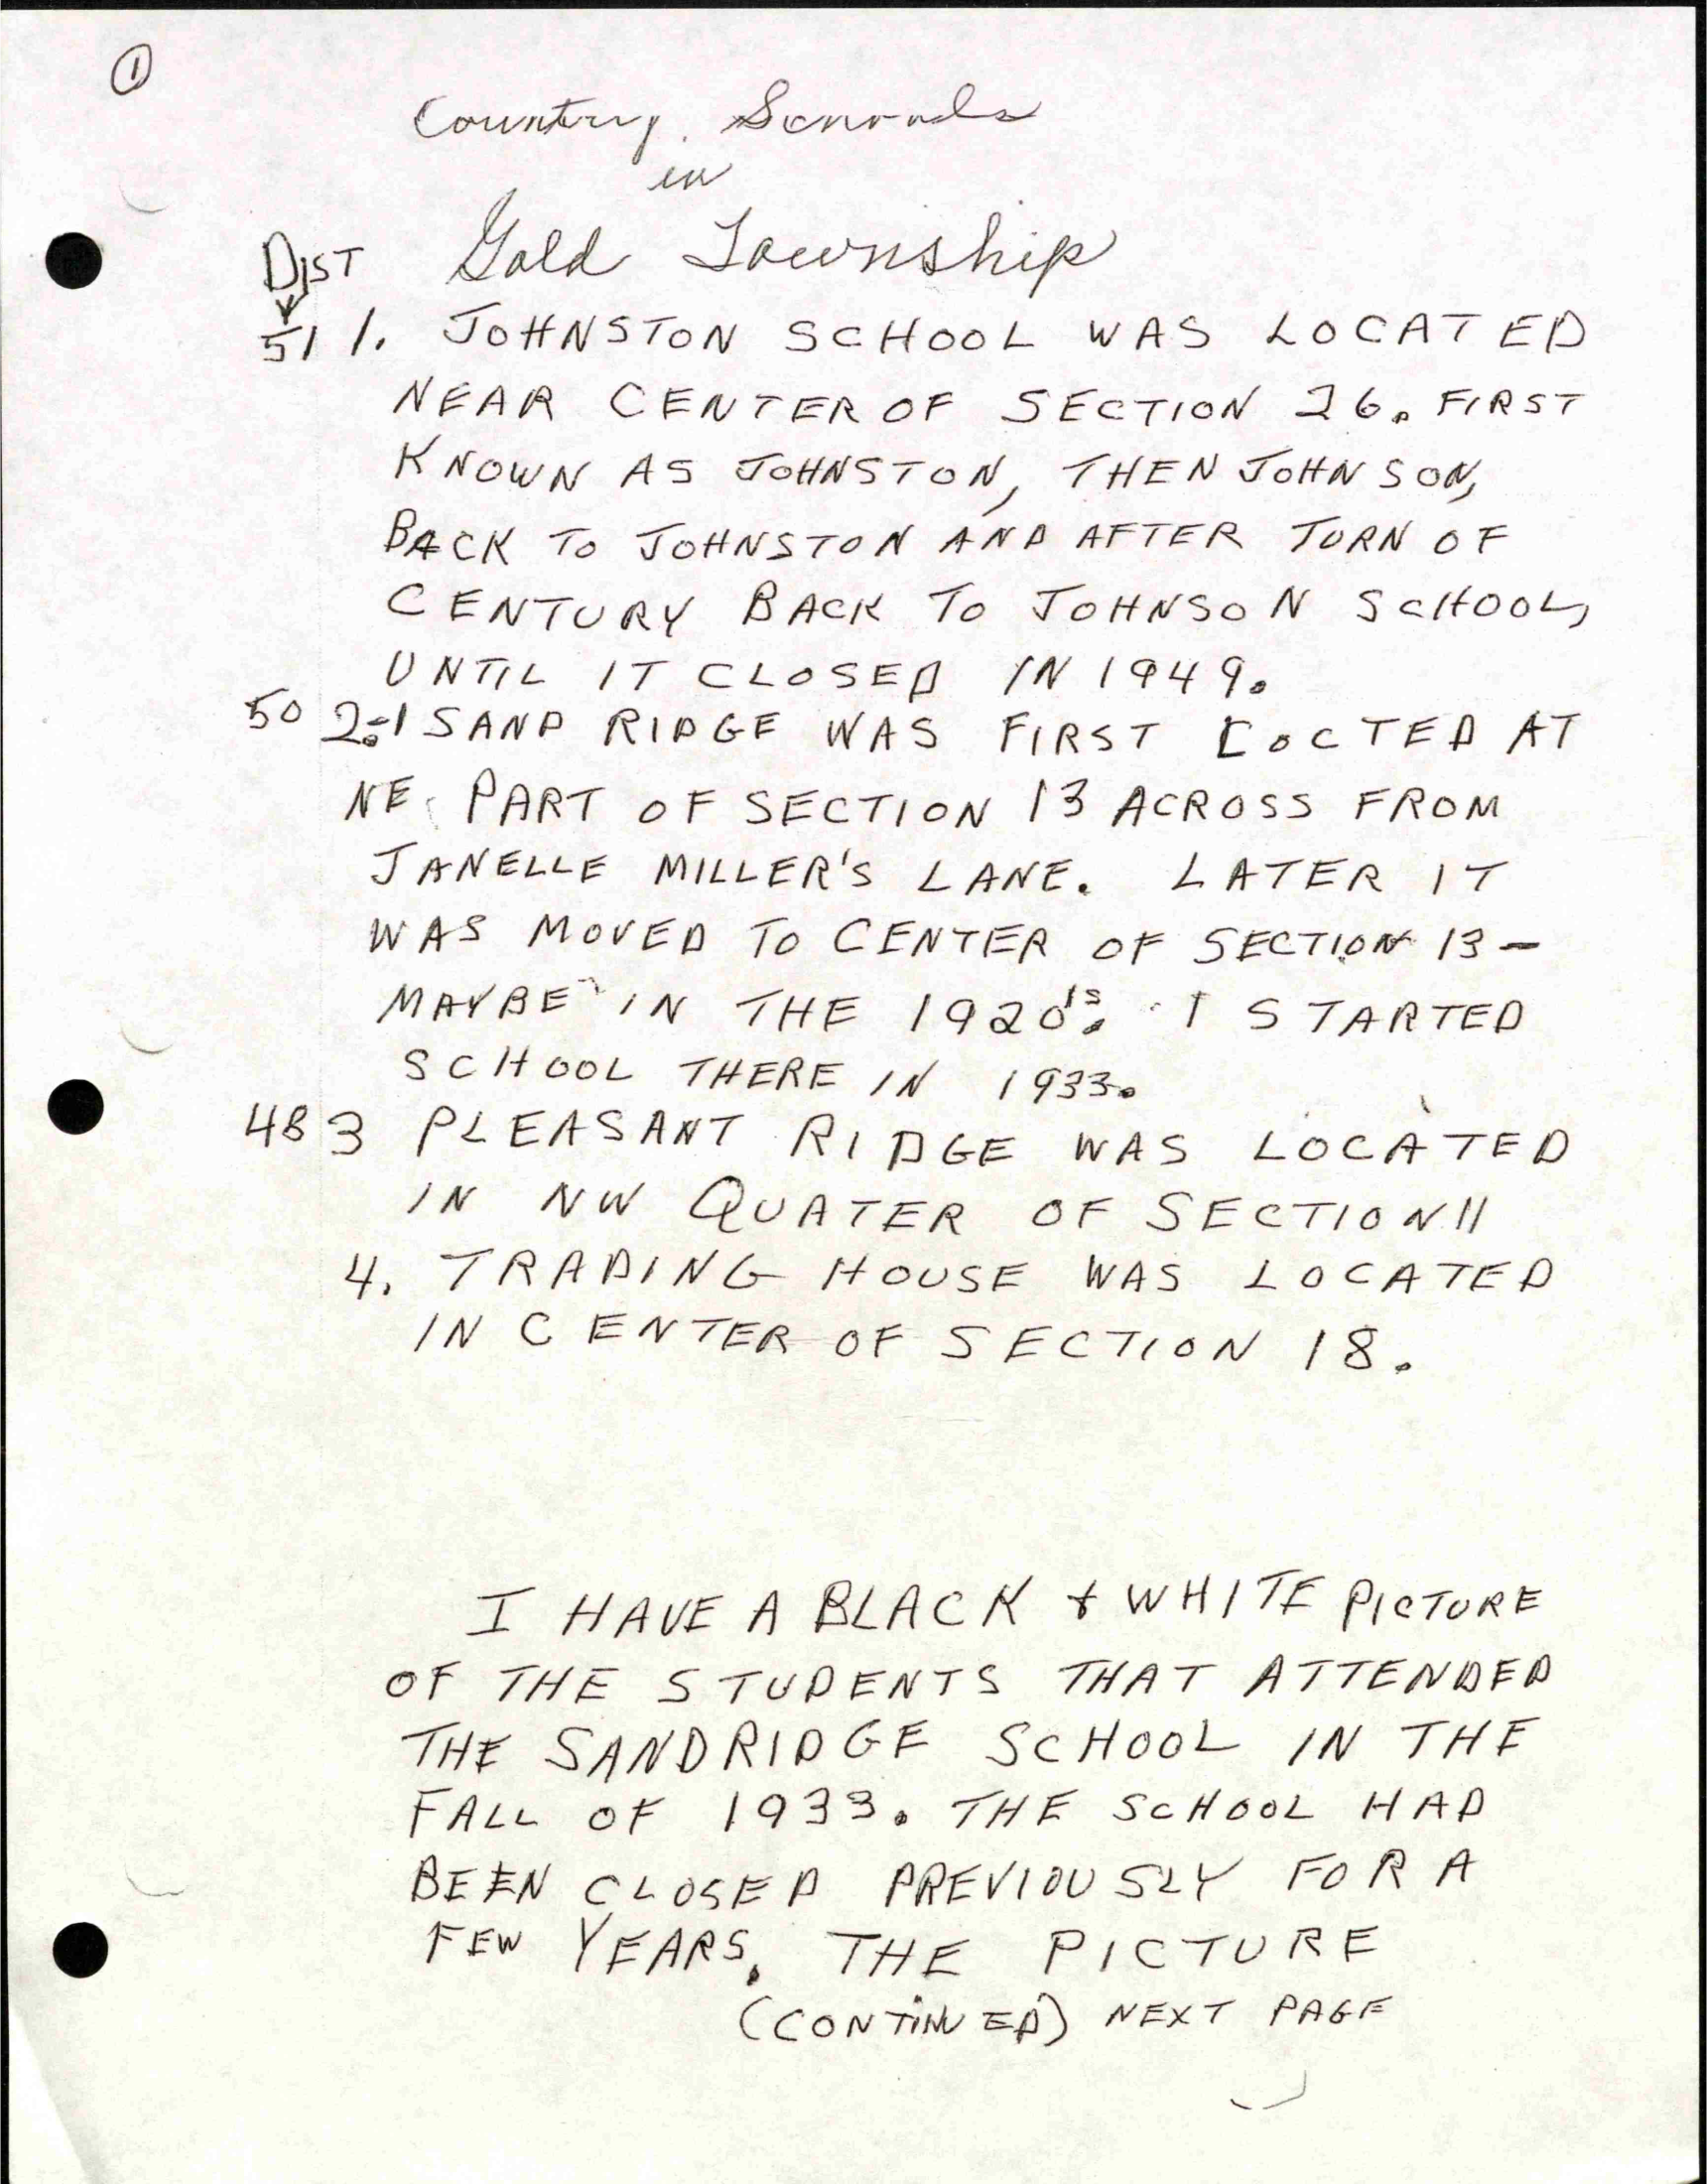 1
Country Schools
in
Dist Gold Township
51 1. JOHNSTON SCHOOL WAS LOCATED
NEAR CENTER OF SECTION 26. FIRST
KNOWN AS JOHNSTON, THEN JOHNSON,
BACK TO JOHNSTON AND AFTER TURN OF
CENTURY BACK TO JOHNSON SCHOOL,
UNTIL IT CLOSED IN 1949.
50 2. SAND RIDGE WAS FIRST LOCTED AT
NE PART OF SECTION 13 ACROSS FROM
JANELLE MILLER'S LANE. LATER IT
WAS MOVED TO CENTER OF SECTION 13-
MAYBE IN THE 1920's. I STARTED
SCHOOL THERE IN 1933.
48 3 PLEASANT RIDGE WAS LOCATED
IN NW QUATER OF SECTION 11
4. TRADING HOUSE WAS LOCATED
IN CENTER OF SECTION 18.
I HAVE A BLACK + WHITE PICTURE
OF THE STUDENTS THAT ATTENDED
THE SANDRIDGE SCHOOL IN THE
FALL OF 1933. THE SCHOOL HAD
BEEN CLOSED PREVIOUSLY FOR A
FEW YEARS. THE PICTURE
(CONTINUED) NEXT PAGE